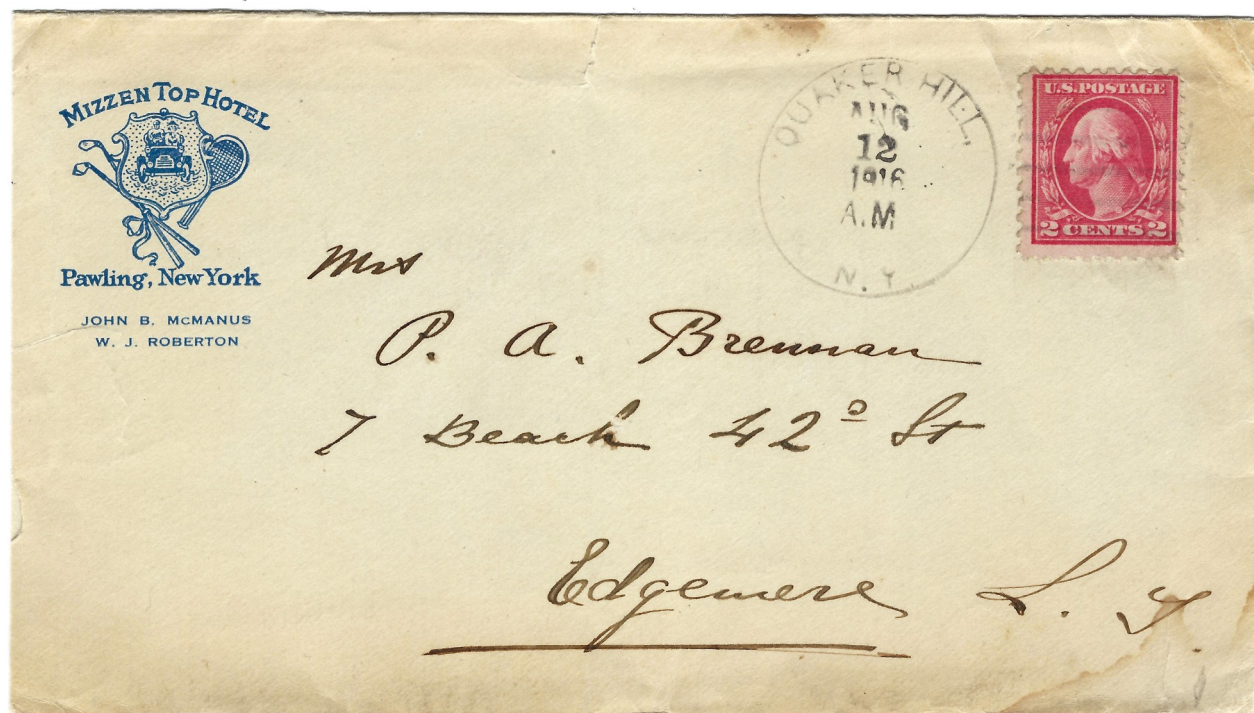 MIZZEN TOP HOTEL
Pawling, New York
JOHN B. McMANUS
W. J. ROBERTON
QUAKER HILL,
AUG
12
1916
A.M
N. Y.
U.S. POSTAGE
2 CENTS 2
Mrs
P. A. Brennan
7 Beach 42ᴰ St
Edgemere L. I.